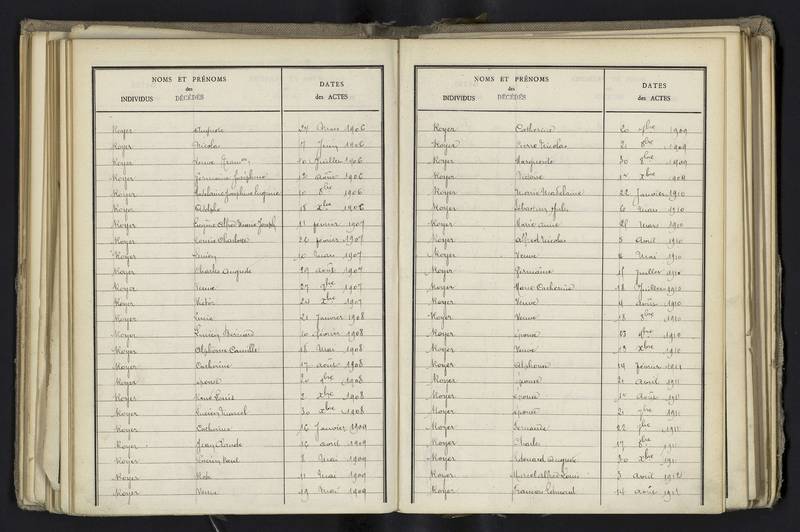 NOMS ET PRÉNOMS
des
INDIVIDUS DÉCÉDÉS
DATES
des ACTES
Moyer Auguste 24 Mars 1906
Moyer Nicolas 7 Juin 1906
Moyer 10 Juillet 1906
Moyer Germaine Joséphine 12 août 1906
Moyer Joséphine Eugénie 10 8bre 1906
Moyer Adolphe 18 xbre 1906
Moyer Eugène Alfred Joseph 11 février 1907
Moyer Louise Charlotte 26 février 1907
Moyer Lucien 10 Mars 1907
Moyer Charles Auguste 29 août 1907
Moyer Veuve 27 9bre 1907
Moyer Victor 24 xbre 1907
Moyer Lucie 21 Janvier 1908
Moyer Lucien Bernard 10 février 1908
Moyer Alphonse Camille 18 Mai 1908
Moyer Catherine 17 août 1908
Moyer épouse 20 9bre 1908
Moyer René Louis 2 xbre 1908
Moyer Lucien Marcel 30 xbre 1908
Moyer Catherine 16 Janvier 1909
Moyer Jean Claude 16 avril 1909
Moyer Paul 8 Mai 1909
Moyer 11 Mai 1909
Moyer Veuve 19 Mai 1909
NOMS ET PRÉNOMS
des
INDIVIDUS DÉCÉDÉS
DATES
des ACTES
Moyer Catherine 20 1909
Moyer Pierre Nicolas 21 8bre 1909
Moyer Marguerite 30 8bre 1909
Moyer Victoire 1er xbre 1909
Moyer Marie Madeleine 22 Janvier 1910
Moyer Sébastien Jules 6 Mars 1910
Moyer Marie Anne 28 Mars 1910
Moyer Alfred Nicolas 5 Avril 1910
Moyer Veuve Mai 1910
Moyer Germaine 15 Juillet 1910
Moyer Marie Catherine 18 Juillet 1910
Moyer Veuve 4 Août 1910
Moyer Veuve 18 8bre 1910
Moyer épouse 23 9bre 1910
Moyer Veuve 13 xbre 1910
Moyer Alphonse 14 février 1911
Moyer épouse 21 avril 1911
Moyer épouse 1er Août 1911
Moyer épouse 21 1911
Moyer Fernande 22 1911
Moyer Charles 17 8bre 1911
Moyer Edouard Auguste 30 xbre 1911
Moyer Marcel Alfred Louis 3 Avril 1912
Moyer François Edouard 14 Août 1912